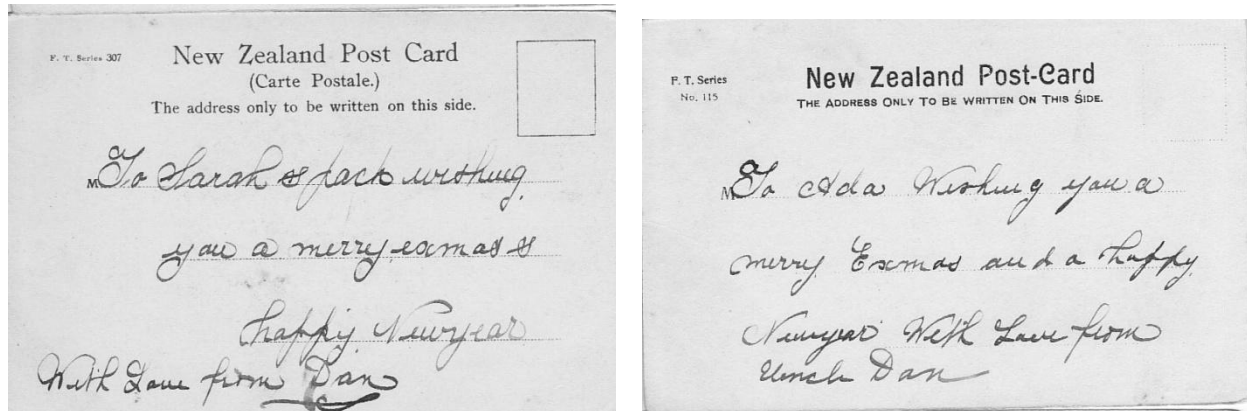 F. T. Series 307
New Zealand Post Card
(Carte Postale.)
The address only to be written on this side.
M To Sarah & Jack wishing
you a merry exmas &
happy Newyear
With Love from Dan
F. T. Series
No. 115
New Zealand Post-Card
THE ADDRESS ONLY TO BE WRITTEN ON THIS SIDE.
M To Ada Wishing you a
merry Exmas and a happy
Newyear With Love from
Uncle Dan